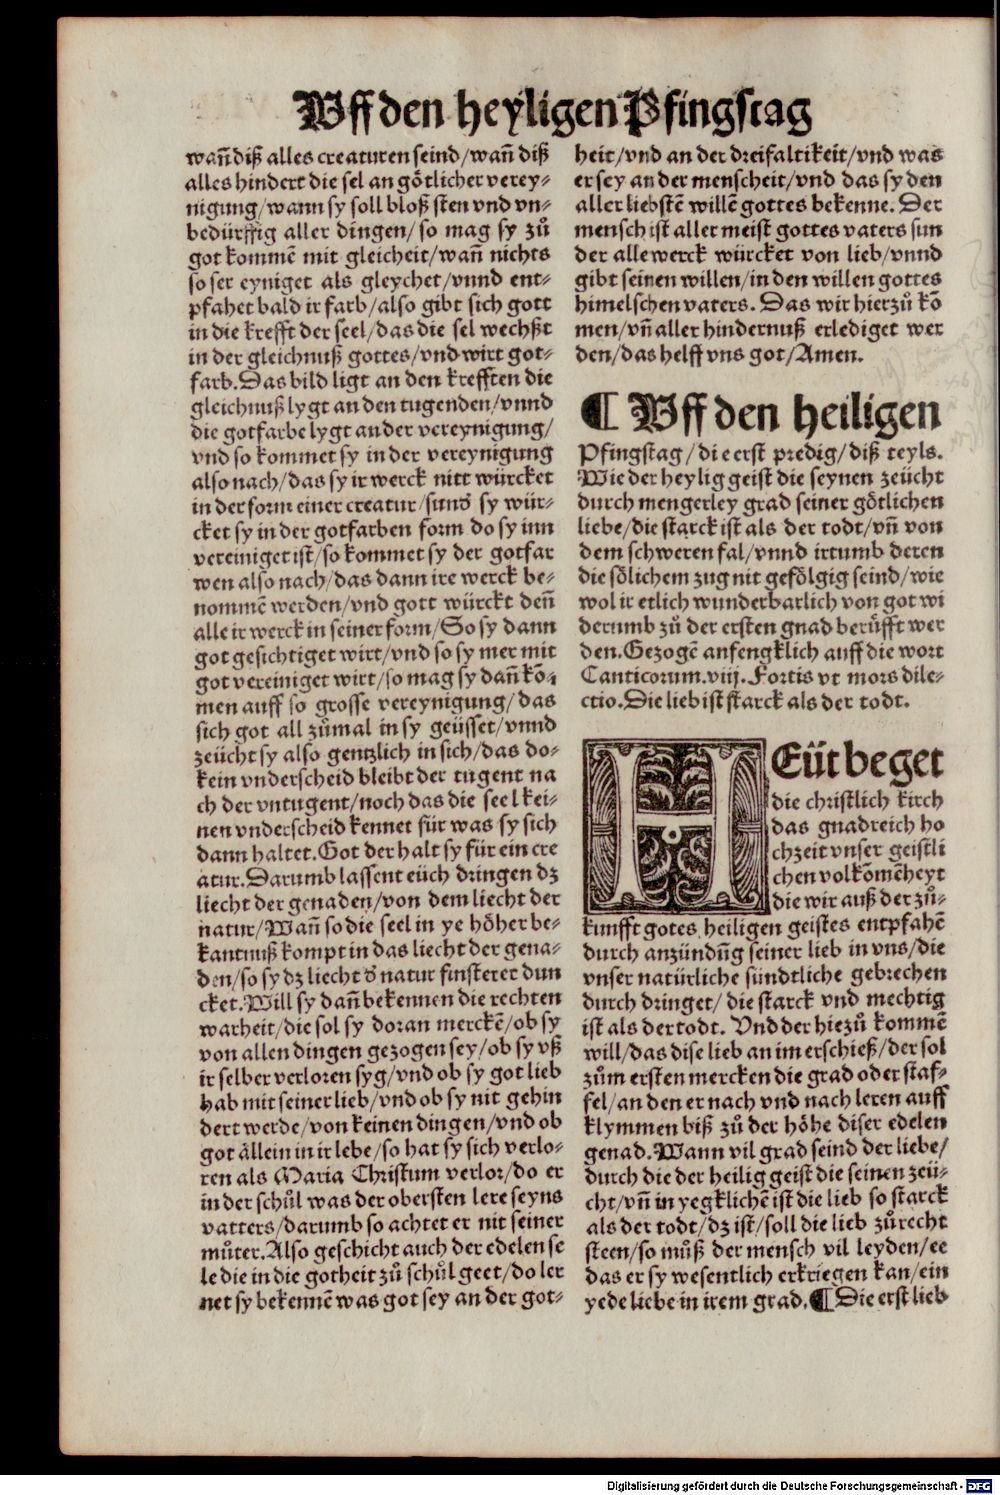 Vff den heyligen Pfingstag
wañ diß alles creaturen seind/wañ diß
alles hindert die sel an gőtlicher verey-
nigung/wann sy soll bloß sten vnd vn-
bedürffig aller dingen/so mag sy zů
got kommẽ mit gleicheit/wañ nichts
so ser eyniget als gleychet/vnnd ent-
pfahet bald ir farb/also gibt sich gott
in die krefft der seel/das die sel wechßt
in der gleichnuß gottes/vnd wirt got-
farb. Das bild ligt an den krefften die
gleichnuß lygt an den tugenden/vnnd
die gotfarbe lygt an der vereynigung/
vnd so kommet sy in der vereynigung
also nach/das sy ir werck nitt würcket
in der form einer creatur/sunď sy wür-
cket sy in der gotfarben form do sy inn
vereiniget ist/so kommet sy der gotfar
wen also nach/das dann ire werck be-
nommẽ werden/vnd gott würckt deñ
alle ir werck in seiner form/So sy dann
got gesichtiget wirt/vnd so sy mer mit
got vereiniget wirt/so mag sy dañ kõ-
men auff so grosse vereynigung/das
sich got all zůmal in sy geüsset/vnnd
zeücht sy also gentzlich in sich/das do-
kein vnderscheid bleibt der tugent na
ch der vntugent/noch das die seel kei-
nen vnderscheid kennet für was sy sich
dann haltet. Got der halt sy für ein cre
atur. Darumb lassent eüch dringen dz
liecht der genaden/von dem liecht der
natur/Wañ so die seel in ye hőher be-
kantnuß kompt in das liecht der gena-
den/so sy dz liecht ď natur finsterer dun
cket. Will sy dañ bekennen die rechten
warheit/die sol sy doran merckẽ/ob sy
von allen dingen gezogen sey/ob sy vß
ir selber verloren syg/vnd ob sy got lieb
hab mit seiner lieb/vnd ob sy nit gehin
dert werde/von keinen dingen/vnd ob
got ällein in ir lebe/so hat sy sich verlo-
ren als Maria Christum verlor/do er
in der schůl was der obersten lere seyns
vatters/darumb so achtet er nit seiner
můter. Also geschicht auch der edelen se
le die in die gotheit zů schůl geet/do ler
net sy bekennẽ was got sey an der got-
heit/vnd an der dreifaltikeit/vnd was
er sey an der menscheit/vnd das sy den
aller liebstẽ willẽ gottes bekenne. Der
mensch ist aller meist gottes vaters sun
der alle werck würcket von lieb/vnnd
gibt seinen willen/in den willen gottes
himelschen vaters. Das wir hierzů kõ
men/vñ aller hindernuß erlediget wer
den/das helff vns got/Amen.
¶ Vff den heiligen
Pfingstag/die erst predig/diß teyls.
Wie der heylig geist die seynen zeücht
durch mengerley grad seiner gőtlichen
liebe/die starck ist als der todt/vñ von
dem schweren fal/vnnd irtumb deren
die sőlichem zug nit gefőlgig seind/wie
wol ir etlich wunderbarlich von got wi
derumb zů der ersten gnad berüfft wer
den. Gezogẽ anfengklich auff die wort
Canticorum.viij. Fortis vt mors dile-
ctio. Die lieb ist starck als der todt.
HEüt beget
die christlich kirch
das gnadreich ho
chzeit vnser geistli
chen volkõmẽheyt
die wir auß der zů-
kunfft gotes heiligen geistes entpfahẽ
durch anzündũg seiner lieb in vns/die
vnser natürliche sündtliche gebrechen
durch dringet/die starck vnd mechtig
ist als der todt. Vnd der hiezů kommẽ
will/das dise lieb an im erschieß/der sol
zům ersten mercken die grad oder staf-
fel/an den er nach vnd nach leren auff
klymmen biß zů der hőhe diser edelen
genad. Wann vil grad seind der liebe/
durch die der heilig geist die seinen zeü-
cht/vñ in yegklichẽ ist die lieb so starck
als der todt/dz ist/soll die lieb zůrecht
steen/so můß der mensch vil leyden/ee
das er sy wesentlich erkriegen kan/ein
yede liebe in irem grad. ¶ Die erst lieb
Digitalisierung gefördert durch die Deutsche Forschungsgemeinschaft - DFG